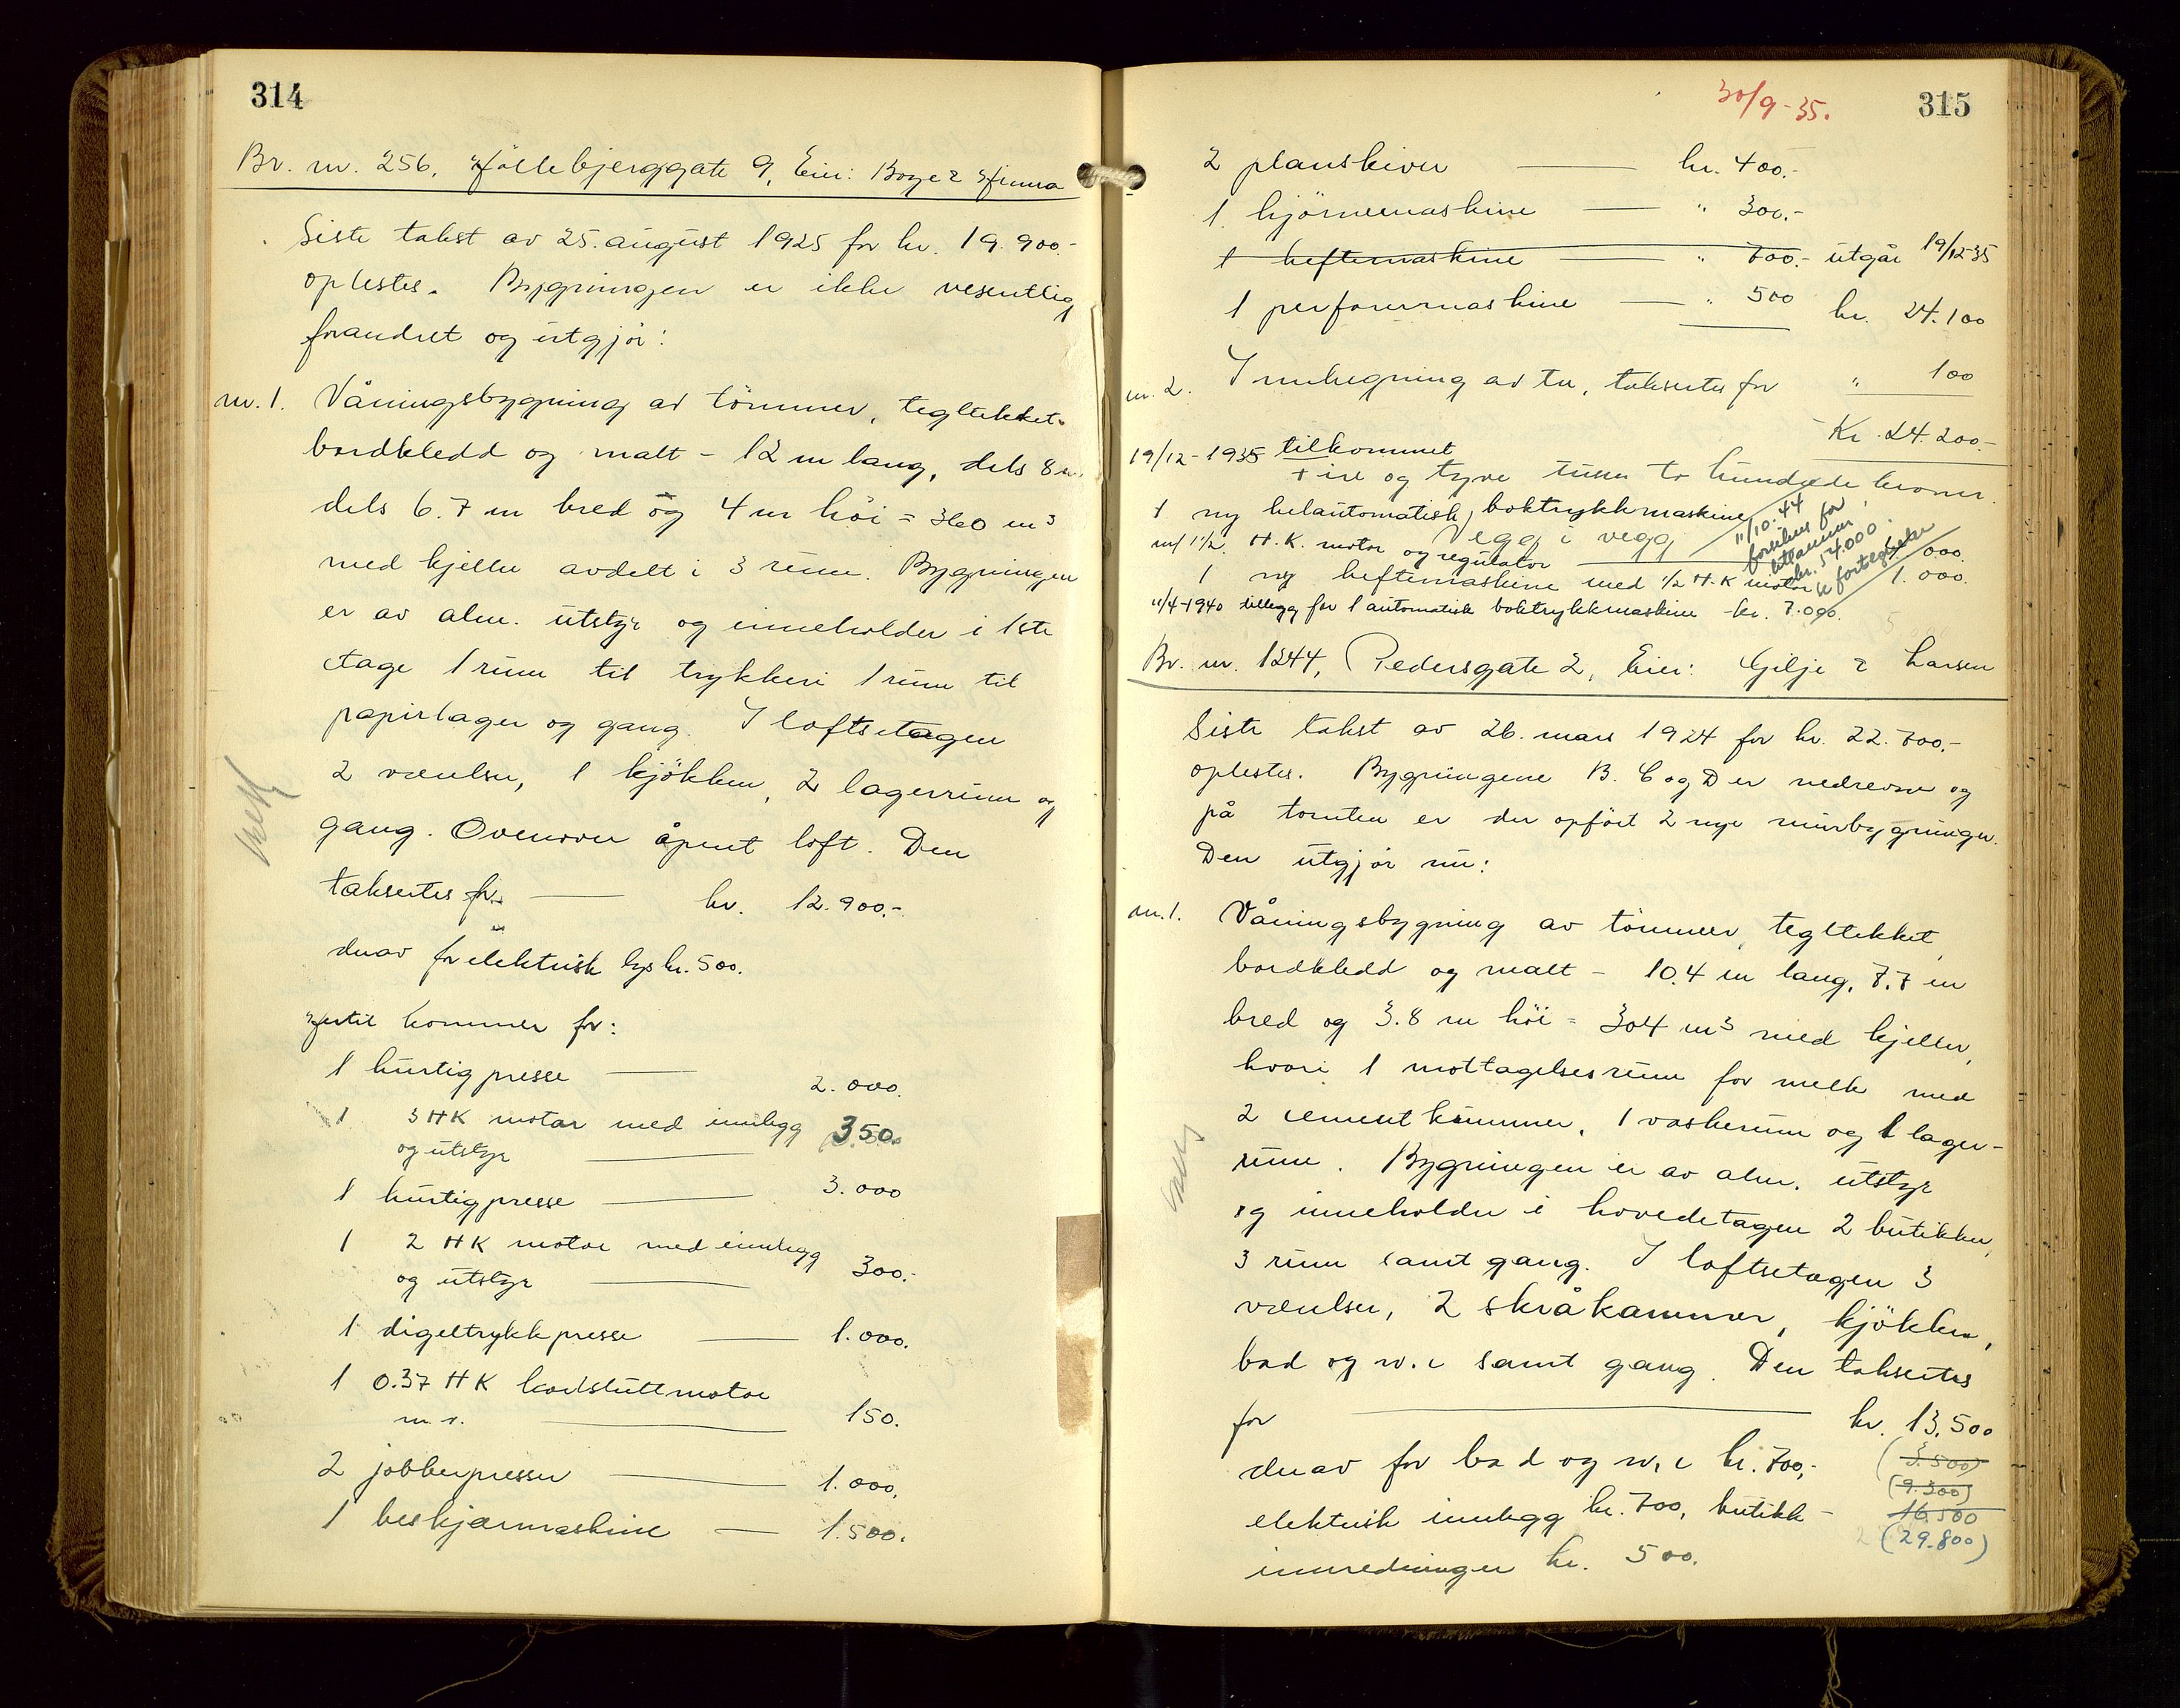 314
Br. nr. 256, Hölebjerggate 9, Eier: Boye & Hinna
Siste takst av 25. august 1925 for kr. 19.900.-
oplestes. Bygningen er ikke vesentlig
forandret og utgjør:
nr. 1. Våningsbygning av tömmer, tegltekket.
bordkledd og malt - 12 m lang, dels 8 m.
dels 6.7 m bred og 4 m höi = 360 m³
med kjeller avdelt i 3 rum. Bygningen
er av alm. utstyr og inneholder i 1ste
etage 1 rum til trykkeri 1 rum til
papirlager og gang. I loftsetagen
2 værelser, 1 kjökken, 2 lagerrum og
gang. Ovenover åpent loft. Den
takseres for kr. 12.900.-
derav for elektrisk lys kr. 500.
Hertil kommer for:
1 hurtigpresse 2.000.
1 3 HK motor med innlegg 350.
og utstyr
1 hurtigpresse 3.000
1 2 HK motor med innlegg
og utstyr 300.-
1 digeltrykkpresse 1.000.
1 0.37 HK kortsluttmotor
m. v. 150.
2 jobberpresser 1.000.
1 beskjærmaskine 1.500.
30/9-35.
315
2 planskiver kr. 400.-
1 hjörnemaskine " 300.-
1 heftemaskine " 700.- utgår 19/12-35
1 perforermaskine " 500 kr. 24.100
nr. 2. Innhegning av tre, takseres for " 100
Kr. 24.200.-
19/12-1935 tilkommet
Fire og tyve tusen to hundrede kroner.
1 ny helautomatisk boktrykkmaskine
Vegg i vegg
m/ 1½ H.K. motor og regulator .000.
11/10.44
for
kr. 54.000.
1 ny heftemaskine med ½ H.K motor 1.000.
11/4-1940 tillegg for 1 automatisk boktrykkmaskine kr. 7.000.
Br. nr. 1244, Pedersgate 2, Eier: Gilje & Larsen
Siste takst av 26. mars 1924 for kr. 22.700.-
oplestes. Bygningene B. C og D er nedrevne og
på tomten er der opført 2 nye murbygninger.
Den utgjør nu:
nr. 1. Våningsbygning av tömmer, tegltekket,
bordkledd og malt - 10.4 m lang, 7.7 m
bred og 3.8 m höi = 304 m³ med kjeller,
hvori 1 mottagelsesrum for melk med
2 cementkummer, 1 vaskerum og 1 lager-
rum. Bygningen er av alm. utstyr
og inneholder i hovedetagen 2 butikker,
3 rum samt gang. I loftsetagen 3
værelser, 2 skråkammer, kjökken,
bad og w.c samt gang. Den takseres
for kr. 13.500
derav for bad og w.c kr. 700,- (3.500)
(9.300)
elektrisk innlegg kr. 700, butikk- 16.500
(29.800)
innredninger kr. 500.